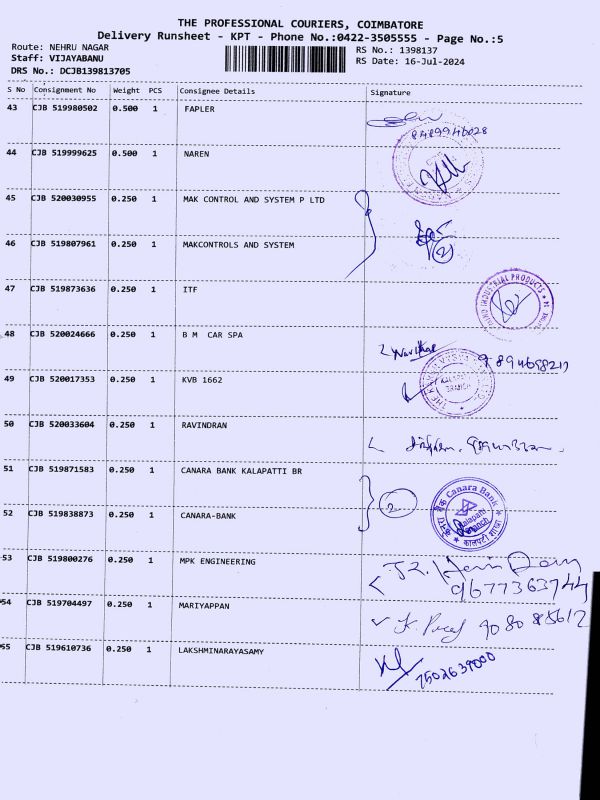 THE PROFESSIONAL COURIERS, COIMBATORE
Delivery Runsheet - KPT - Phone No.:0422-3505555 - Page No.:5
Route: NEHRU NAGAR
Staff: VIJAYABANU
DRS No.: DCJB139813705
RS No.: 1398137
RS Date: 16-Jul-2024
S No Consignment No Weight PCS Consignee Details Signature
43 CJB 519980502 0.500 1 FAPLER
8489946028
44 CJB 519999625 0.500 1 NAREN
45 CJB 520030955 0.250 1 MAK CONTROL AND SYSTEM P LTD
46 CJB 519807961 0.250 1 MAKCONTROLS AND SYSTEM
(2)
47 CJB 519873636 0.250 1 ITF
INDUSTRIAL PRODUCTS
48 CJB 520024666 0.250 1 B M CAR SPA
49 CJB 520017353 0.250 1 KVB 1662
BRANCH
50 CJB 520033604 0.250 1 RAVINDRAN
51 CJB 519871583 0.250 1 CANARA BANK KALAPATTI BR
2
केनरा बैंक Canara Bank
Kalapatti Branch
52 CJB 519838873 0.250 1 CANARA-BANK
53 CJB 519800276 0.250 1 MPK ENGINEERING
9677363744
54 CJB 519704497 0.250 1 MARIYAPPAN
9080885612
55 CJB 519610736 0.250 1 LAKSHMINARAYASAMY
7502639000